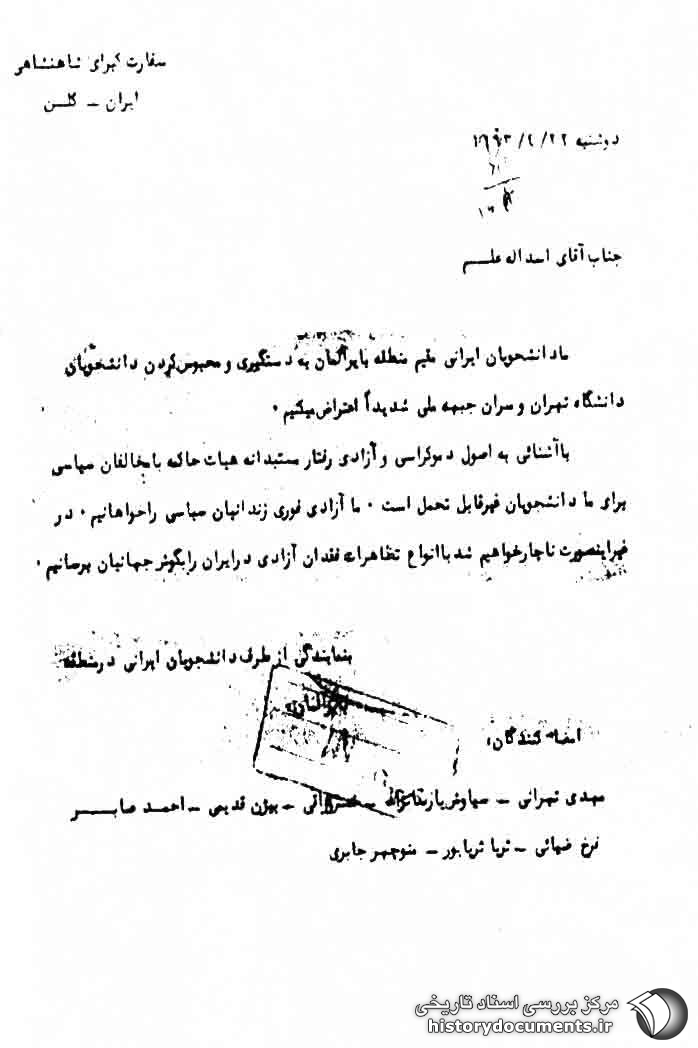 سفارت کبرای شاهنشاهی
ایران – کلن
دوشنبه ۲۲/۲/
جناب آقای اسداله علم
مادانشجویان ایرانی مقیم منطقه بایرآلمان به دستگیری و محبوس کردن دانشجویان
دانشگاه تهران و سران جبهه ملی شدیداً اعتراض میکنیم ۰
باآشنائی به اصول دموکراسی و آزادی رفتار مستبدانه هیات حاکمه با مخالفان سیاسی
برای ما دانشجویان غیرقابل تحمل است ۰ ما آزادی فوری زندانیان سیاسی را خواهانیم ۰ در
غیراینصورت ناچار خواهیم شد با انواع تظاهرات فقدان آزادی در ایران را بگوش جهانیان برسانیم ۰
بنمایندگی از طرف دانشجویان ایرانی در منطقه
امضاء کنندگان:
مهدی تهرانی – سیاوش – بیژن قدیمی – احمد صابر
فرخ – ثریا ثریاپور – منوچهر جابری
مرکز بررسی اسناد تاریخی
historydocuments.ir